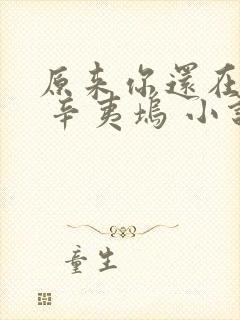 原来你還在
辛夷塢 小
童生